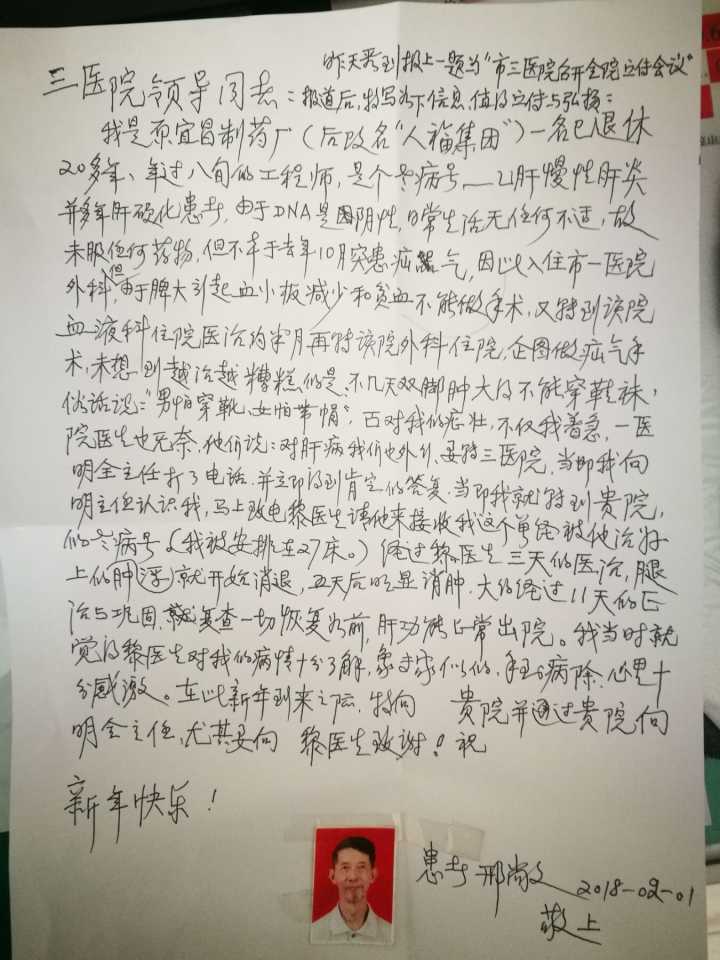 昨天看到报上一题为"市三医院召开全院宣传会议"
三医院领导同志：报道后，特写如下信息，值得宣传与弘扬：
我是原宜昌制药厂（后改名"人福集团"）一名已退休
20多年、年过八旬的工程师，是个老病号——乙肝慢性肝炎
并多年肝硬化患者，由于DNA是阴性，日常生活无任何不适，故
未服任何药物，但不幸于去年10月突患疝气，因此入住市一医院
外科，但由于脾大引起血小板减少和贫血不能做手术，又转到该院
血液科住院医治约半月再转该院外科住院，企图做疝气手
术，未想到越治越糟糕的是，不几天双脚肿大得不能穿鞋袜，
俗话说："男怕穿靴，女怕带帽"，面对我的症壮，不仅我着急，一医
院医生也无奈，他们说：对肝病我们也外行，要转三医院，当即我向
明全主任打了电话，并立即得到肯定的答复，当即我就转到贵院，
明主任认识我，马上致电黎医生请他来接收我这个曾经被他治好
的老病号（我被安排在27床。）经过黎医生三天的医治，腿
上的肿浮就开始消退，五天后明显消肿，大约经过11天的医
治与巩固，就复查一切恢复如前，肝功能正常出院。我当时就
觉得黎医生对我的病情十分了解，象专家似的，手到病除，心里十
分感激。在此新年到来之际，特向 贵院并通过贵院向
明全主任、尤其要向 黎医生致谢！祝
新年快乐！
患者 邢尚文 2018-02-01
敬上